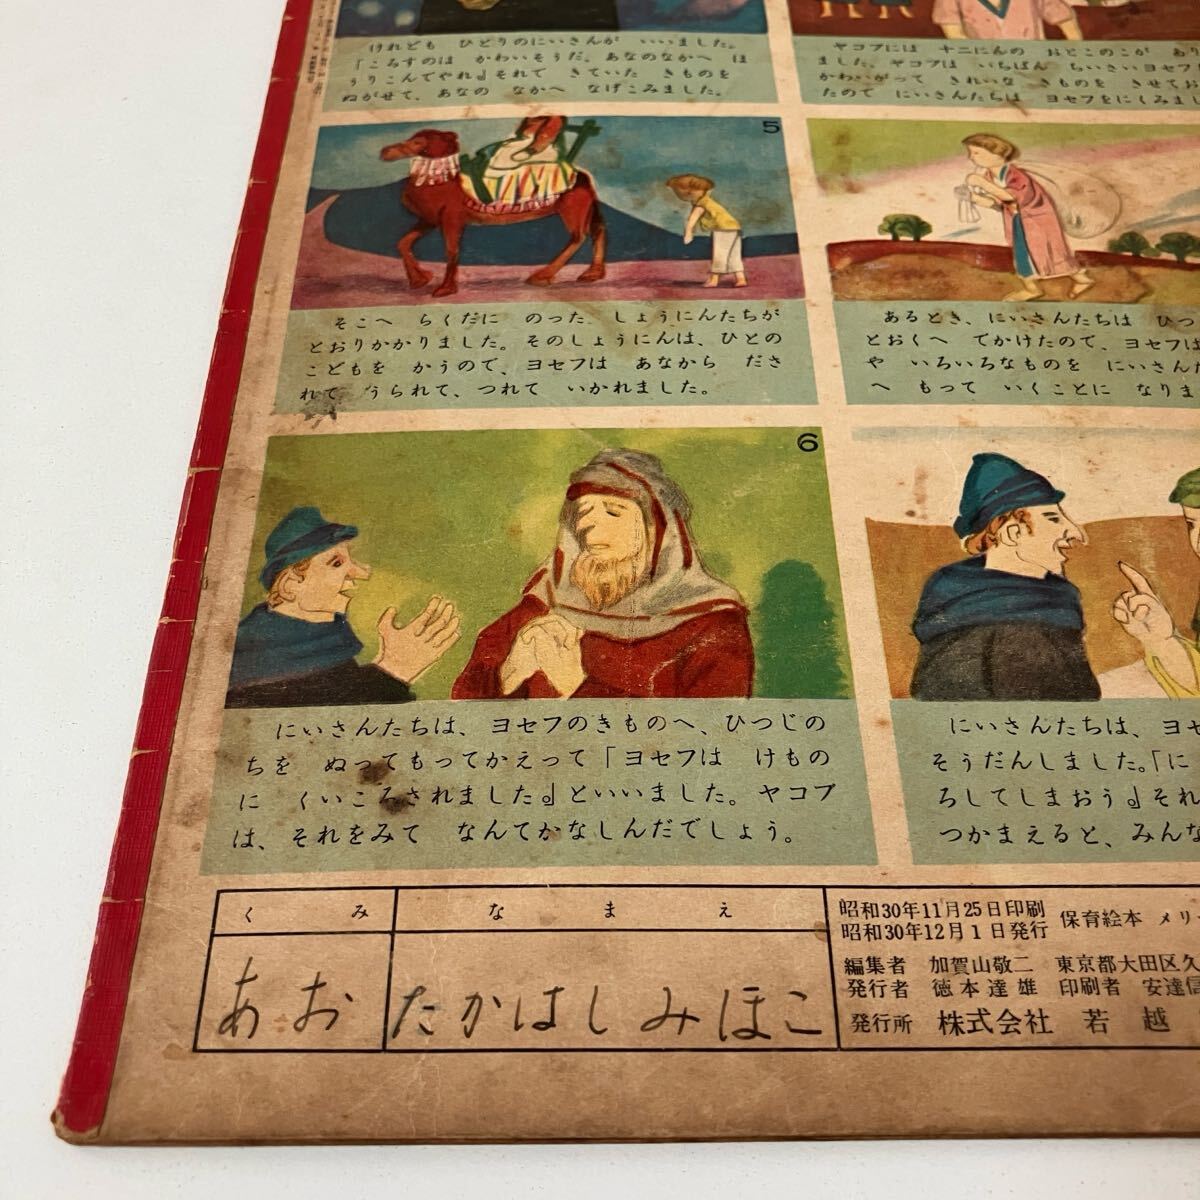 ヤコブには 十二にんの おとこのこが あり
ました。ヤコブは いちばん ちいさいヨセフ
かわいがって きれいな きものを きせてお
たので にいさんたちは ヨセフをにくみまし
あるとき、にいさんたちは ひつ
とおくへ てかけたので、ヨセフは
や いろいろなものを にいさんた
へ もって いくことに なりま
にいさんたちは、ヨセ
そうだんしました。「に
ろしてしまおう』それ
つかまえると、みんな
けれども ひとりのにいさんが いいました。
「ころすのは かわいそうだ、あなのなかへ ほ
うりこんでやれ』それで きていた きものを
ぬがせて、あなの なかへ なげこみました。
5
そこへ らくだに のった、しょうにんたちが
とおりかかりました。そのしょうにんは、ひとの
こどもを かうので、ヨセフは あなから ださ
れて、うられて、つれて いかれました。
6
にいさんたちは、ヨセフのきものへ、ひつじの
ちを ぬってもってかえって「ヨセフは けもの
に くいころされました』といいました。ヤコブ
は、それをみて なんてかなしんだでしょう。
くみ
なまえ
あお
たかはしみほこ
昭和30年11月25日印刷
昭和30年12月1日発行
保育絵本 メリ
編集者 加賀山敬二 東京都大田区久
発行者 徳本達雄 印刷者 安達信
発行所 株式会社 若越